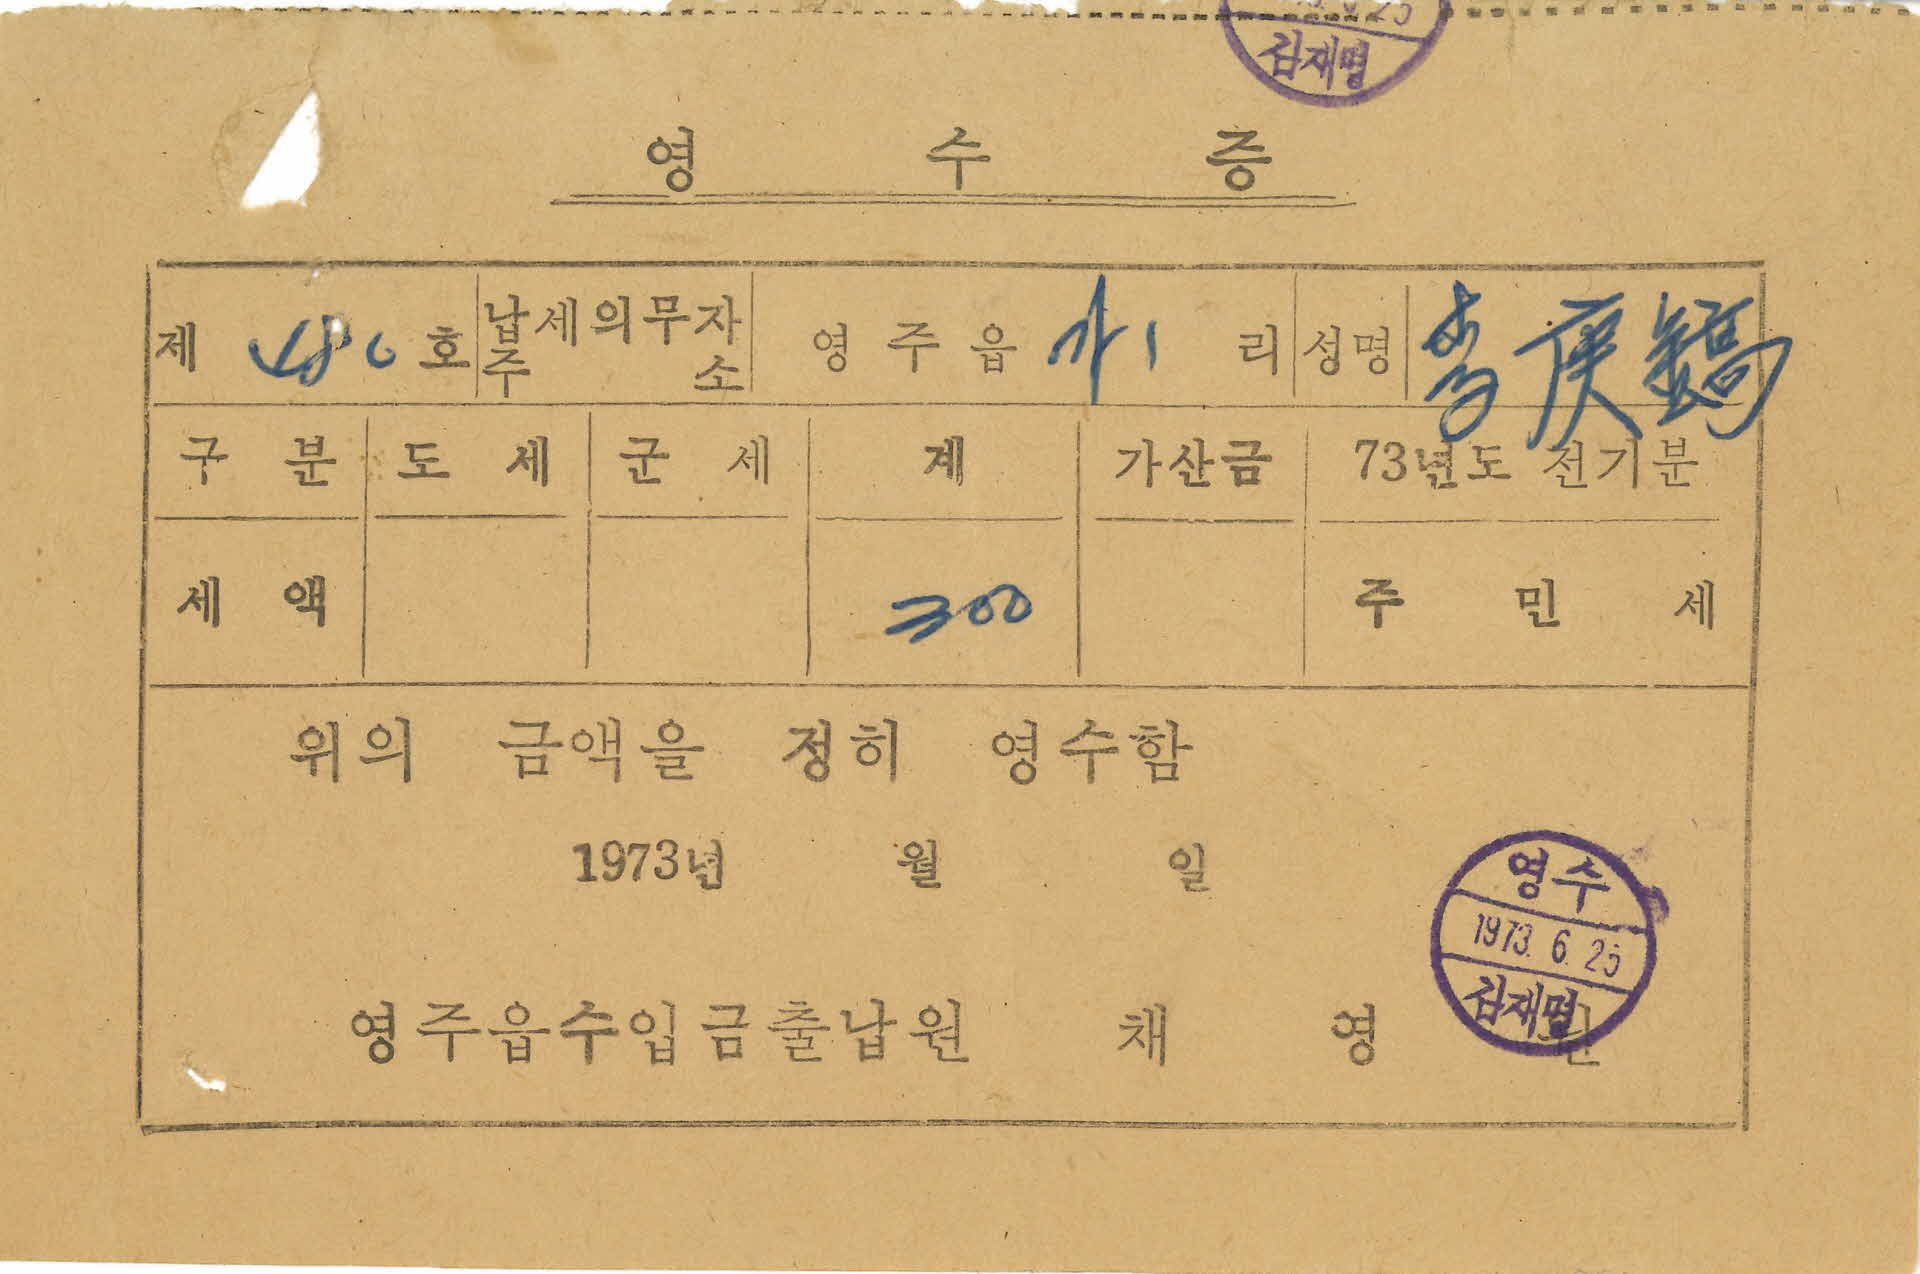 김재명
영 수 증
제 480 호 납세의무자 주소 영주읍 가1 리 성명 李庚鎬
구 분 도 세 군 세 계 가산금 73년도 전기분
세 액 300 주 민 세
위의 금액을 정히 영수함
1973년 월 일
영수
1973. 6. 25
김재명
영주읍수입금출납원 채 영